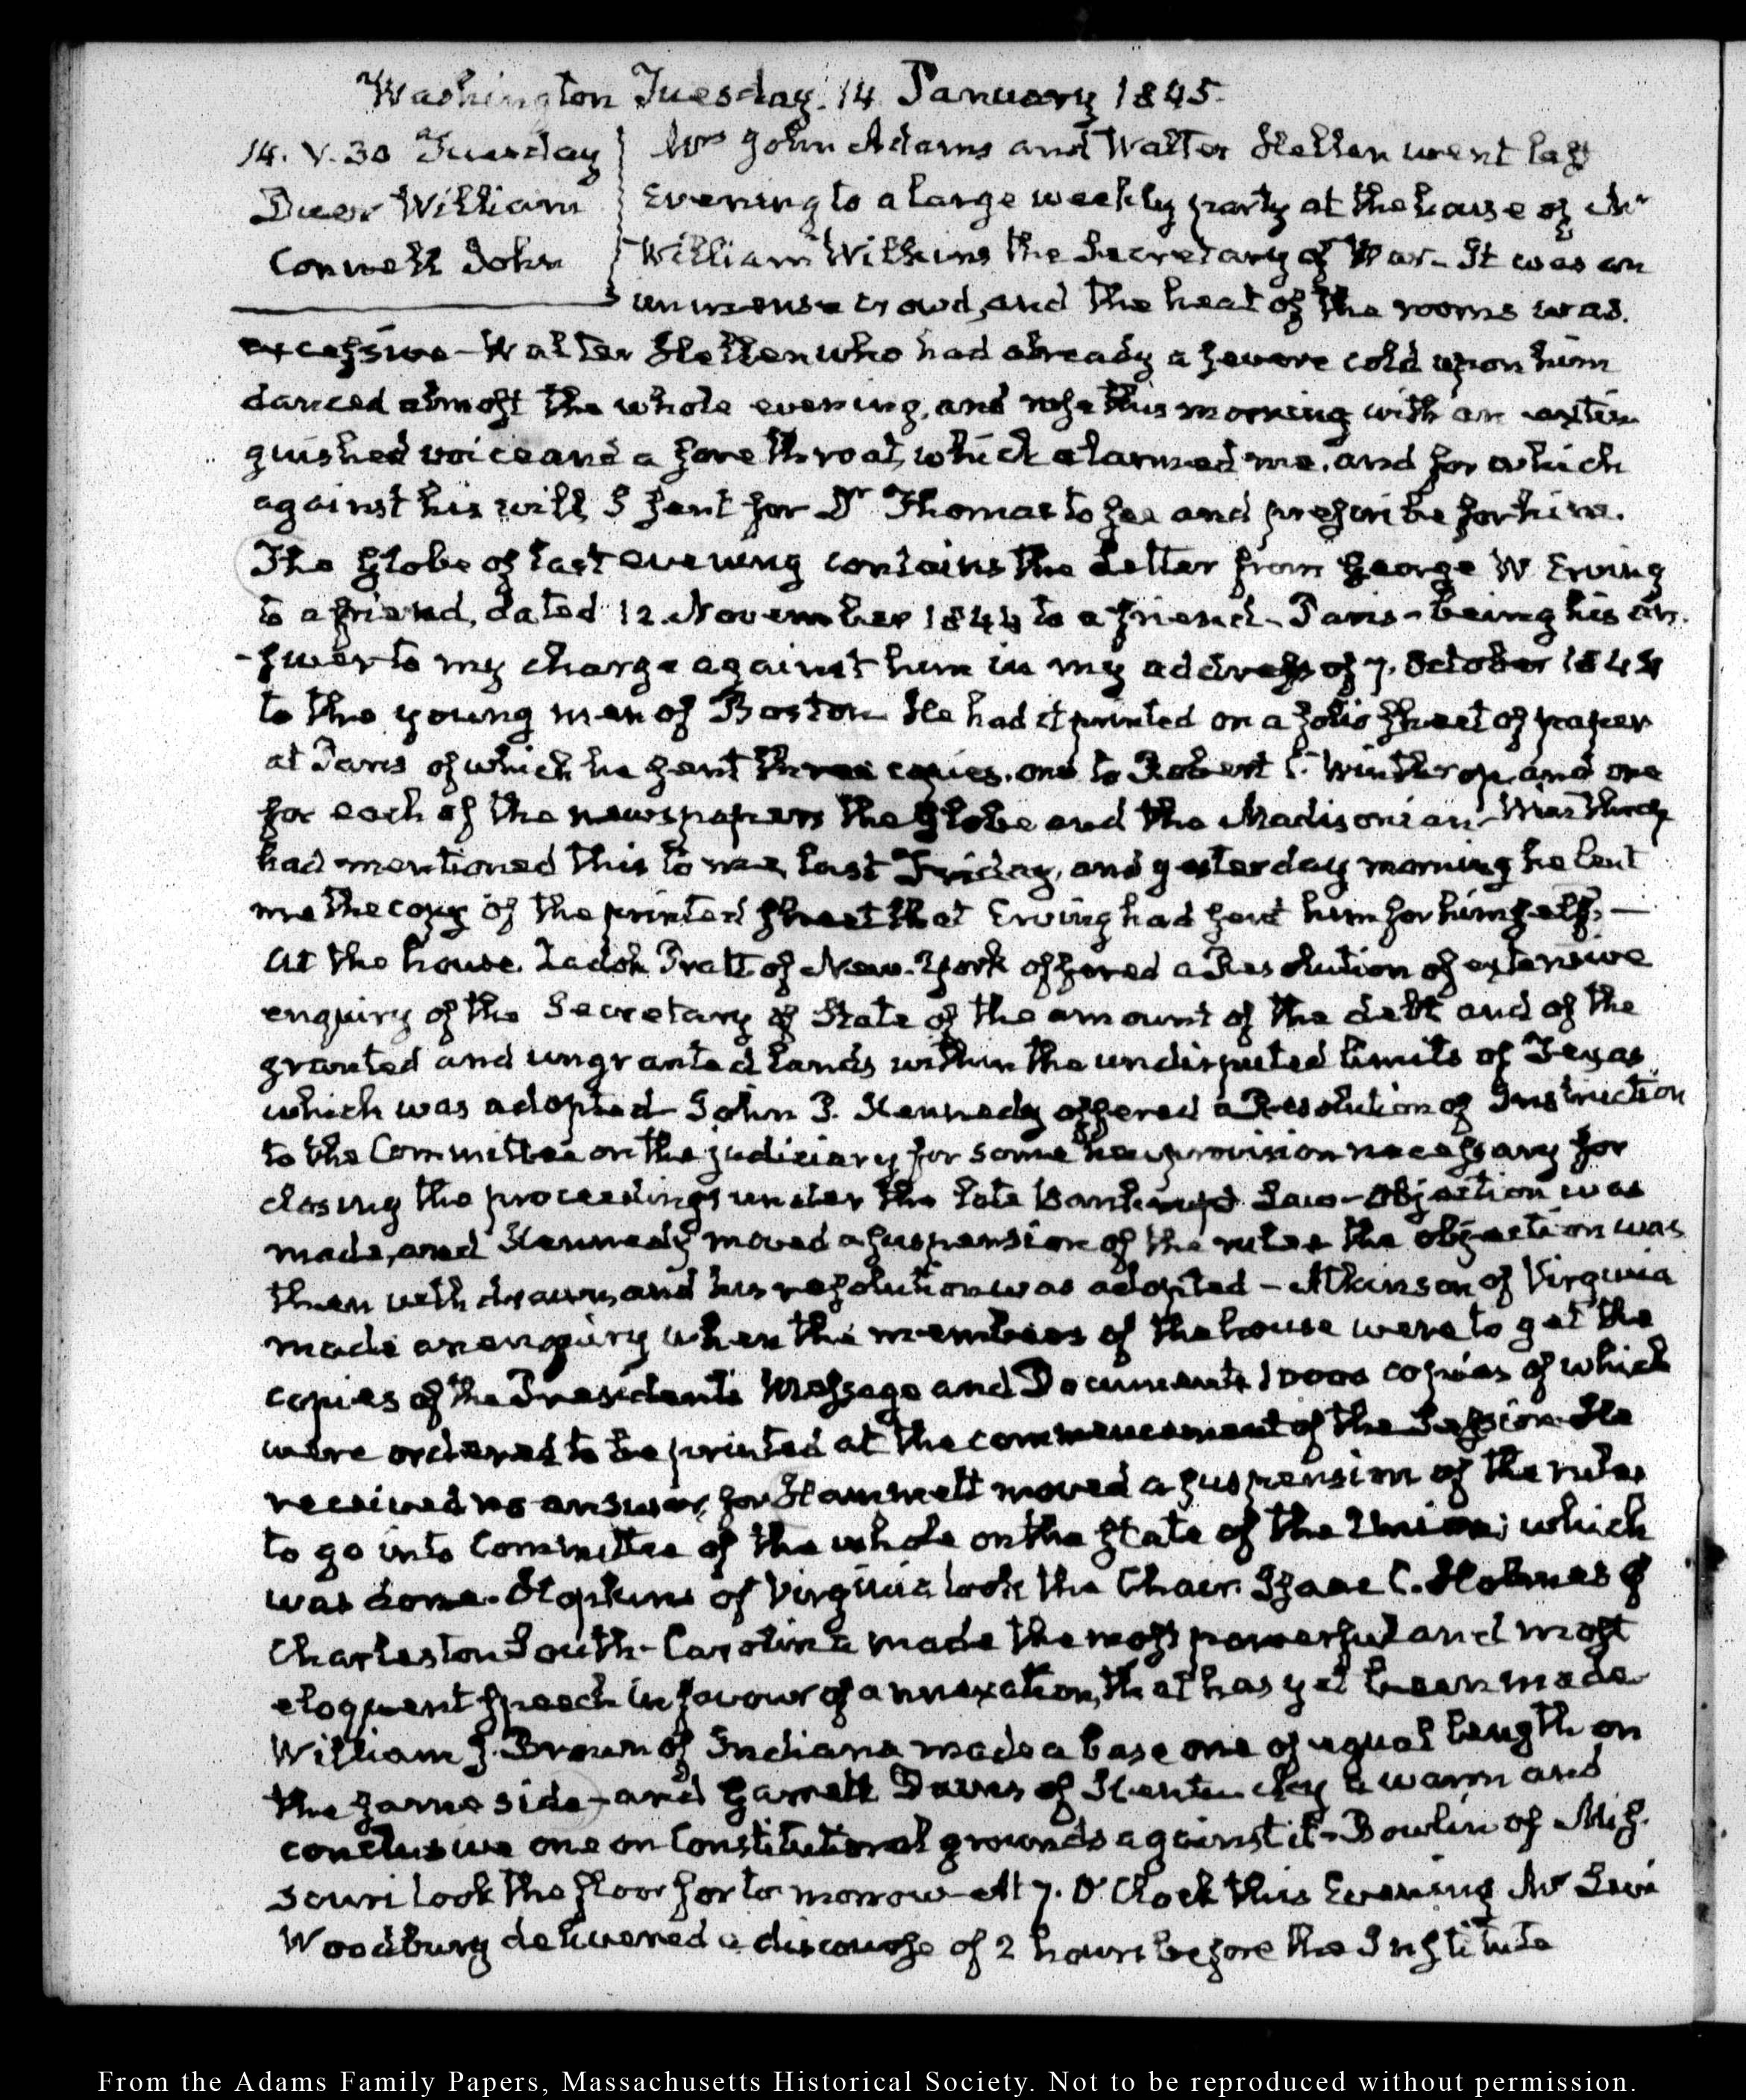 Washington Tuesday. 14 January 1845.
14. V.30 Tuesday
Duer William
Connell John
Mrs John Adams and Walter Hellen went last
Evening to a large weekly party at the house of Mr
William Wilkins the Secretary of War. It was an
immense crowd, and the heat of the rooms was
excessive - Walter Hellen who had already a severe cold upon him
danced almost the whole evening, and rose this morning with an extin
guished voice and a sore throat, which alarmed me, and for which
against his will, I sent for Dr Thomas to see and prescribe for him.
The Globe of last evening contains the Letter from George W Erving
to a friend, dated 12. November 1844 to a friend - Paris - being his an-
-swer to my charge against him in my address of 7. October 1844
to the young men of Boston He had it printed on a folio sheet of paper
at Paris of which he sent three copies. one to Robert C. Winthrop, and one
for each of the newspapers the Globe and the Madisonian - Winthrop
had mentioned this to me, last Friday, and yesterday morning he lent
me the copy of the printed sheet that Erving had sent him for himself. —
At the house. Zadok Pratt of New-York offered a Resolution of extensive
enquiry of the Secretary of State of the amount of the debt and of the
granted and ungranted lands within the undisputed limits of Texas
which was adopted - John P. Kennedy offered a Resolution of Instruction
to the Committee on the judiciary for some new provision necessary for
closing the proceedings under the late Bankrupt Law - Objection was
made, and Kennedy moved a suspension of the rules the objection was
then withdrawn, and his resolution was adopted - Atkinson of Virginia
made an enquiry when the members of the house were to get the
copies of the Presidents Message and Documents 10000 copies of which
were ordered to be printed at the commencement of the Session. He
received no answer, for Hammett moved a suspension of the rules
to go into Committee of the whole on the state of the Union; which
was done. Hopkins of Virginia took the Chair. Isaac E. Holmes of
Charleston South-Carolina made the most powerful and most
eloquent speech in favour of annexation, that has yet been made
William J. Brown of Indiana made a base one of equal length on
the same side - and Garrett Davis of Kentucky a warm and
conclusive one on Constitutional grounds against it - Bowlin of Mis-
souri took the floor for to-morrow - At 7. O'Clock this Evening Mr Levi
Woodbury delivered a discourse of 2 hours before the Institute
From the Adams Family Papers, Massachusetts Historical Society. Not to be reproduced without permission.